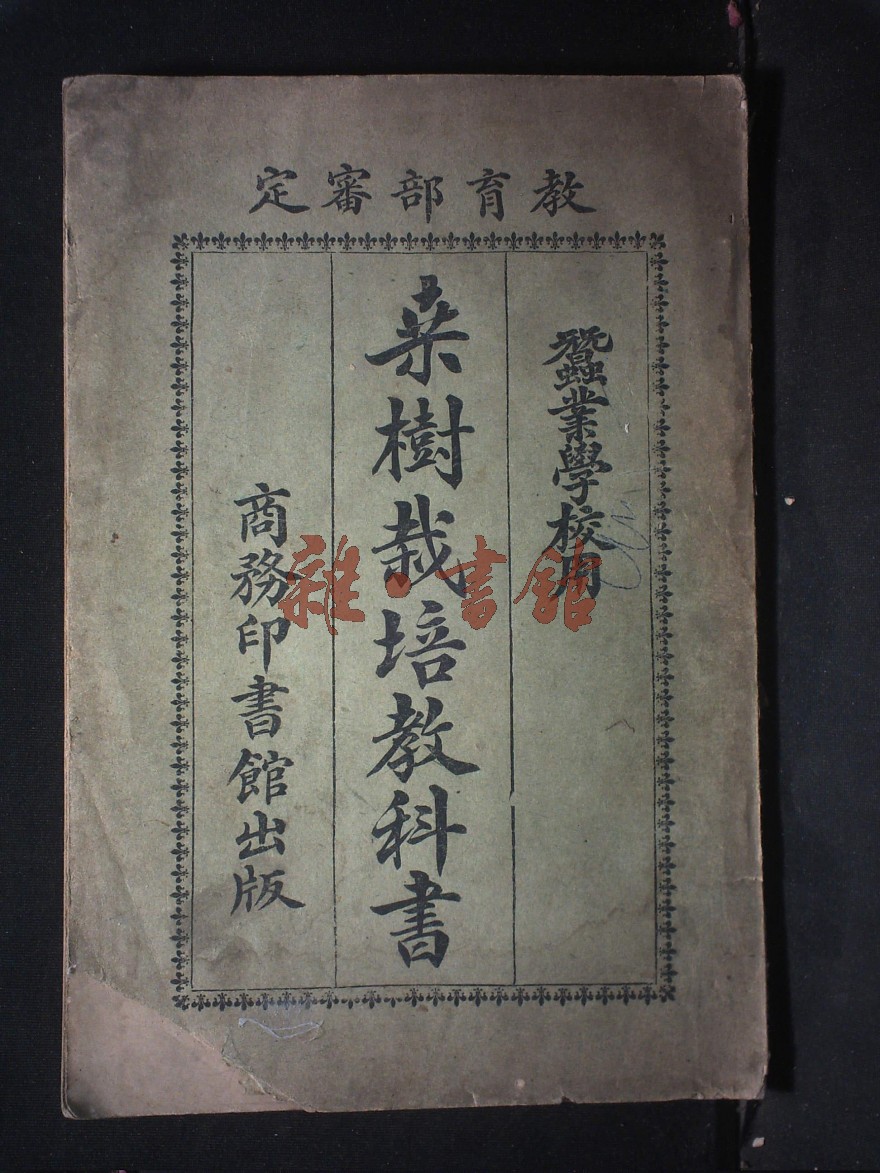 教育部審定
蠶業學校用
桒樹栽培教科書
商務印書館出版
雜·書館